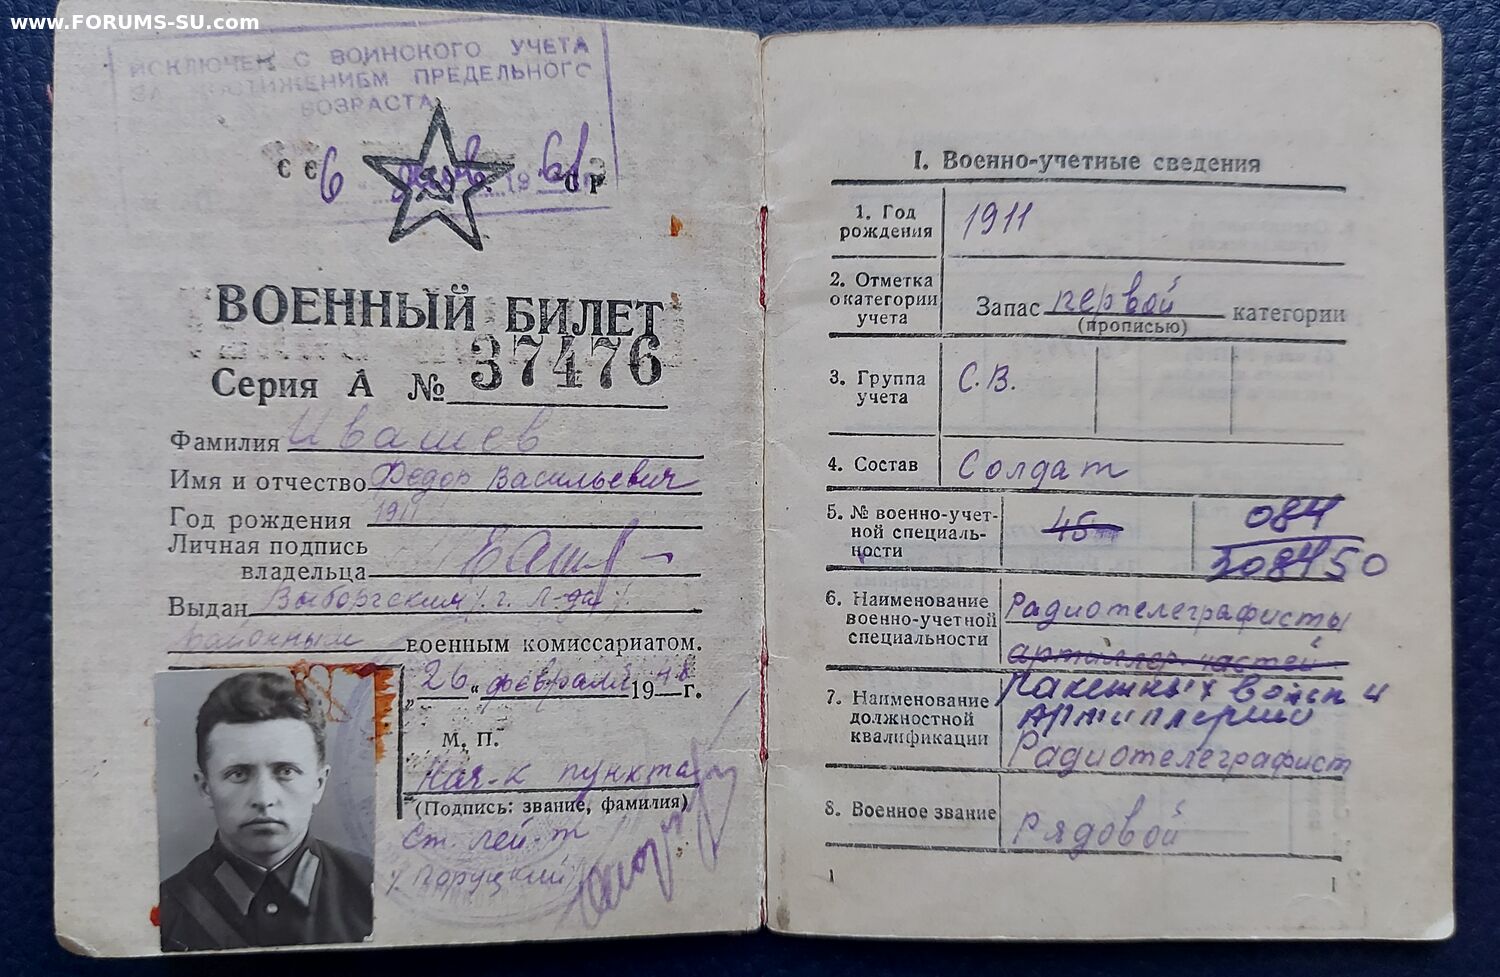 www.FORUMS-SU.com
ИСКЛЮЧЕН С ВОИНСКОГО УЧЕТА
ЗА ДОСТИЖЕНИЕМ ПРЕДЕЛЬНОГО
ВОЗРАСТА
С С С Р
6 19 61
ВОЕННЫЙ БИЛЕТ
Серия А № 37476
Фамилия Ивашев
Имя и отчество Федор Васильевич
Год рождения 1911
Личная подпись
владельца
Выдан Выборгским г. Л-да
районным военным комиссариатом.
„26“ февраля 1948 г.
М. П.
Нач-к пункта
(Подпись: звание, фамилия)
Ст. лей-т
/Поруцкий/
I. Военно-учетные сведения
1. Год
рождения 1911
2. Отметка
о категории
учета
Запас первой категории
(прописью)
3. Группа
учета С.В.
4. Состав Солдат
5. № военно-учет-
ной специаль-
ности
45 084
6. Наименование
военно-учетной
специальности
Радиотелеграфисты
артиллер. частей
Ракетных войск и
Артиллерии
7. Наименование
должностной
квалификации
Радиотелеграфист
8. Военное звание Рядовой
1 1